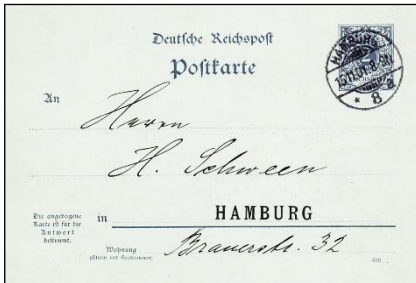 Deutsche Reichspost
Postkarte
HAMBURG
8
An
Herrn
H. Schween
Die angebogene
Karte ist für die
Antwort
bestimmt.
in HAMBURG
Wohnung
Brauerstr. 32